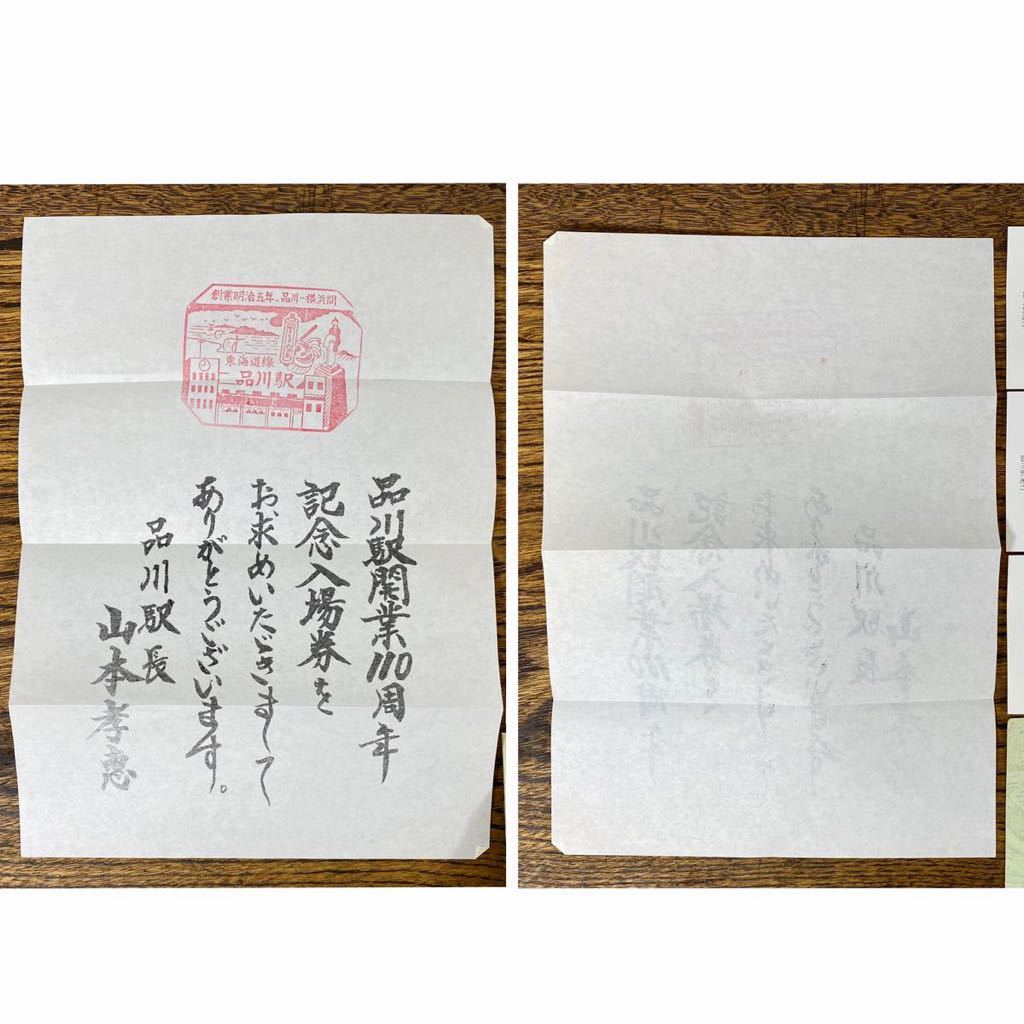 創業明治五年、品川－横浜間
東海道線
品川駅
品川駅開業110周年
記念入場券を
お求めいただきまして
ありがとうございます。
品川駅長
山本孝恵